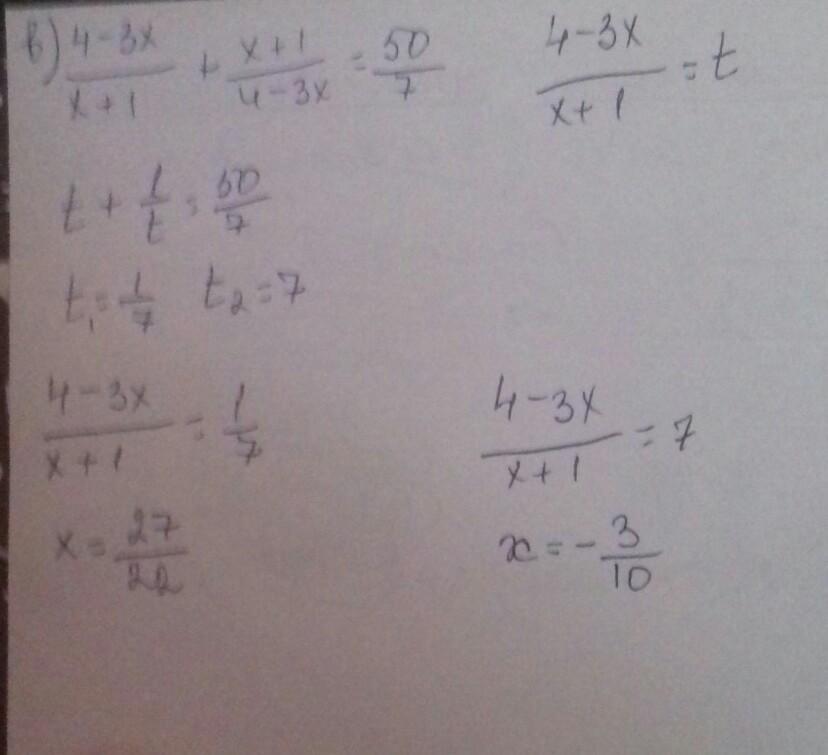 в) (4-3x)/(x+1) + (x+1)/(4-3x) = 50/7    (4-3x)/(x+1) = t
t + 1/t = 50/7
t₁ = 1/7    t₂ = 7
(4-3x)/(x+1) = 1/7    (4-3x)/(x+1) = 7
x = 27/22    x = -3/10